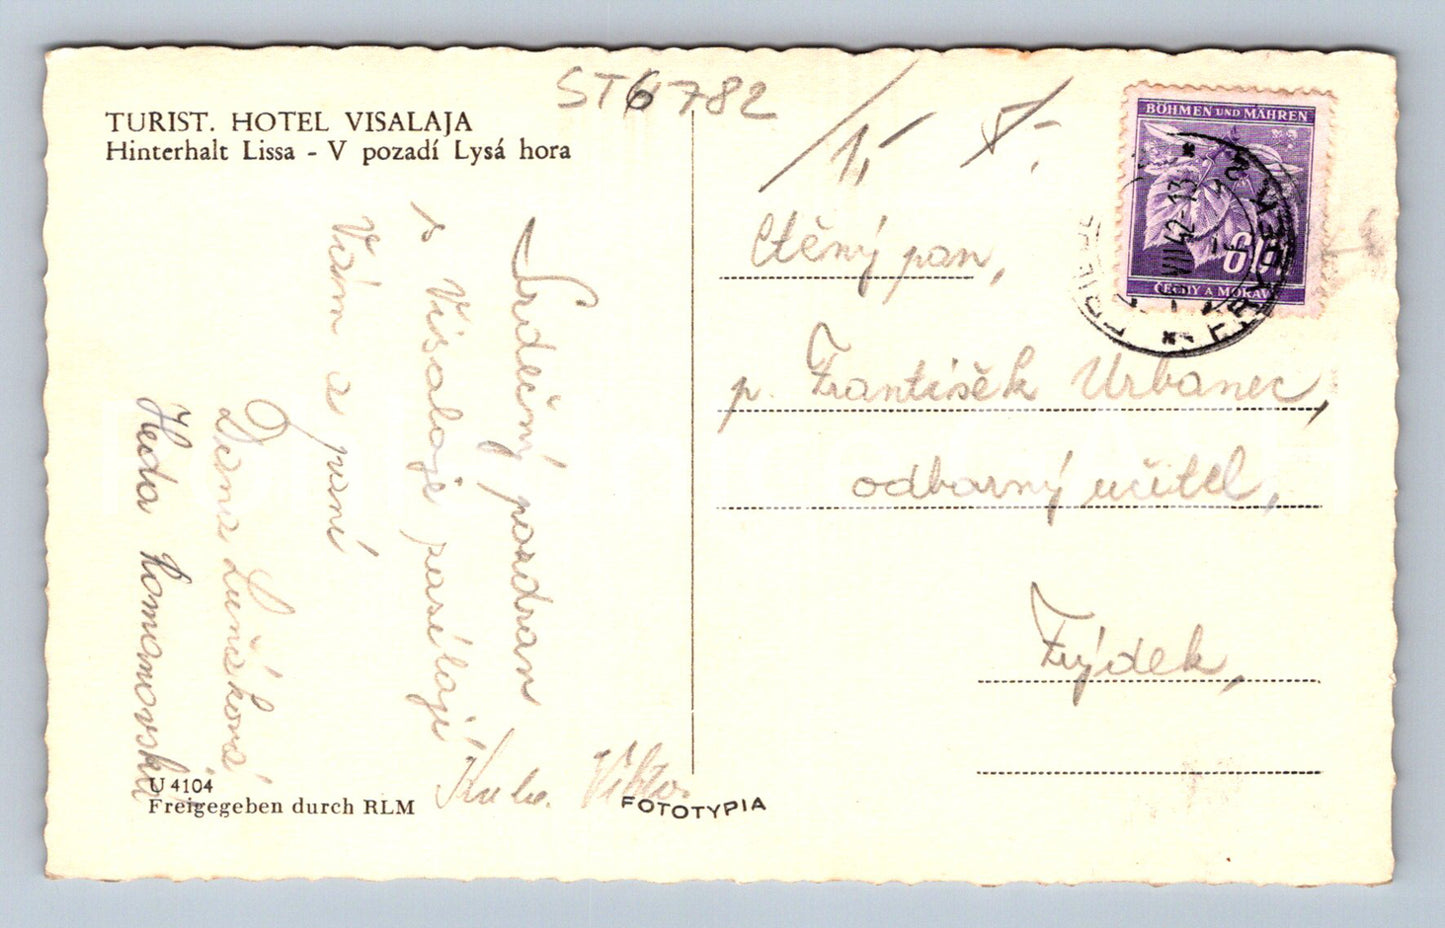 TURIST. HOTEL VISALAJA
Hinterhalt Lissa - V pozadí Lysá hora
ST6782
1,-
BÖHMEN UND MÄHREN
60
ČECHY A MORAVA
VIII 42-13
Srdečný pozdrav
s Visalaje posílají
Vám a paní
Dana Luňáková
Heda
Kuba. Viktor.
Ctěný pan,
p. František Urbanec,
odborný učitel,
Frýdek,
U 4104
Freigegeben durch RLM
FOTOTYPIA